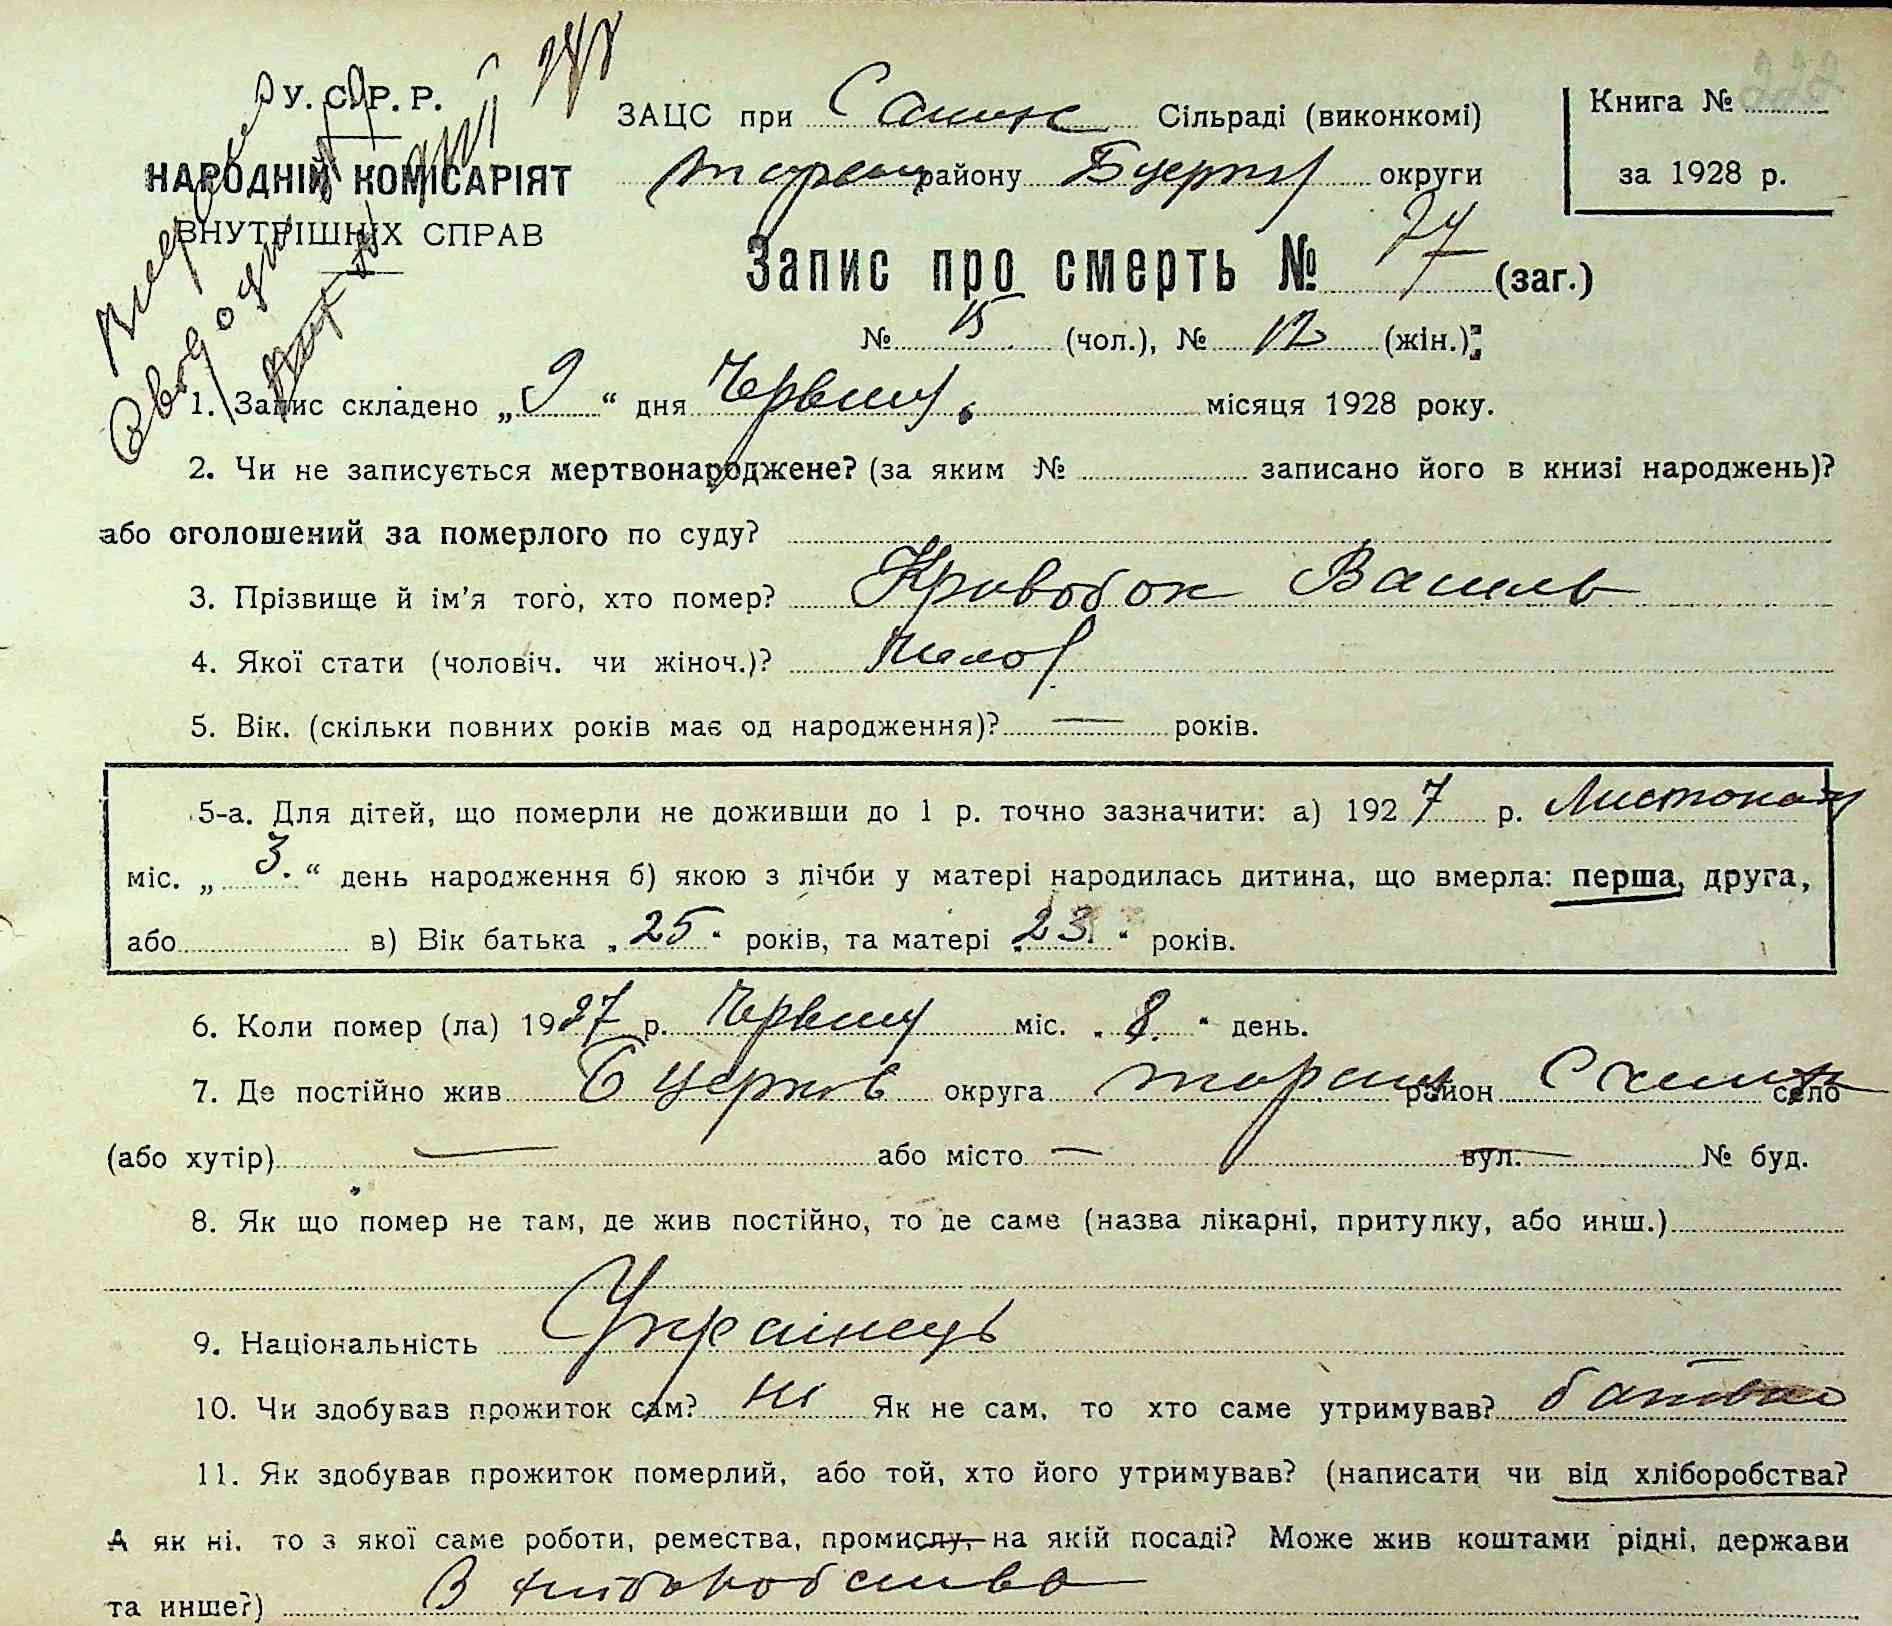 У. С. Р. Р.
НАРОДНІЙ КОМІСАРІЯТ
ВНУТРІШНІХ СПРАВ
ЗАЦС при Сільраді (виконкомі)
району Бцеркв округи
Книга №
за 1928 р.
Запис про смерть № 27 (заг.)
№ 15 (чол.), № 12 (жін.)
1. Запис складено „ 9 “ дня Червня місяця 1928 року.
2. Чи не записується мертвонароджене? (за яким № записано його в книзі народжень)?
або оголошений за померлого по суду?
3. Прізвище й ім'я того, хто помер? Кривобок Василь
4. Якої стати (чоловіч. чи жіноч.)? Чолов
5. Вік. (скільки повних років має од народження)? — років.
5-а. Для дітей, що померли не доживши до 1 р. точно зазначити: а) 1927 р. Листопад
міс. „ 3. “ день народження б) якою з лічби у матері народилась дитина, що вмерла: перша, друга,
або в) Вік батька „ 25 “ років, та матері „ 23 “ років.
6. Коли помер (ла) 1927 р. Червня міс. „ 8. “ день.
7. Де постійно жив Бцерків округа район село
(або хутір) — або місто — вул. — № буд.
8. Як що помер не там, де жив постійно, то де саме (назва лікарні, притулку, або инш.)
9. Національність Українець
10. Чи здобував прожиток сам? Ні Як не сам, то хто саме утримував? батько
11. Як здобував прожиток померлий, або той, хто його утримував? (написати чи від хліборобства?
А як ні. то з якої саме роботи, ремества, промислу, на якій посаді? Може жив коштами рідні, держави
та инше?) З хліборобства